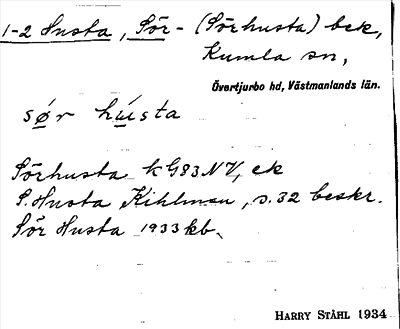 1-2 Husta, Sör- (Sörhusta) bek,
Kumla sn,
Övertjurbo hd, Västmanlands län.
sør husta
Sörhusta k G83 NV, ek
S. Husta Kihlman, s. 32 beskr.
Sör Husta 1933 kb.
HARRY STÅHL 1934